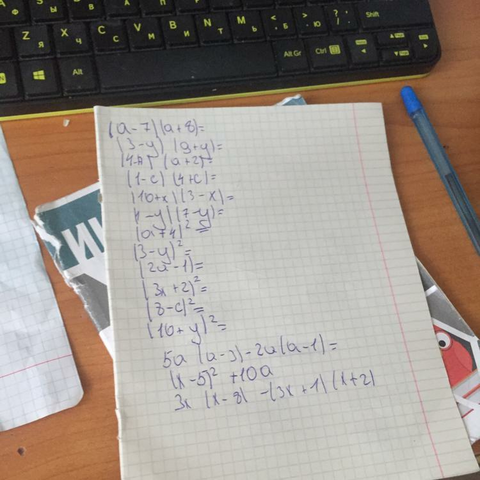 Shift
Alt Gr
Ctrl
(a-7)(a+8)=
(3-y)(9+y)=
(a+2)=
(1-c)(4+c)=
(10+x)(3-x)=
(4-y)(7-y)=
(a+4)²=
(3-y)²=
(2a-1)=
(3x+2)²=
(8-c)²=
(10+y)²=
5a(a-3)-2a(a-1)=
(x-5)²+10a
3x(x-8)-(3x+1)(x+2)